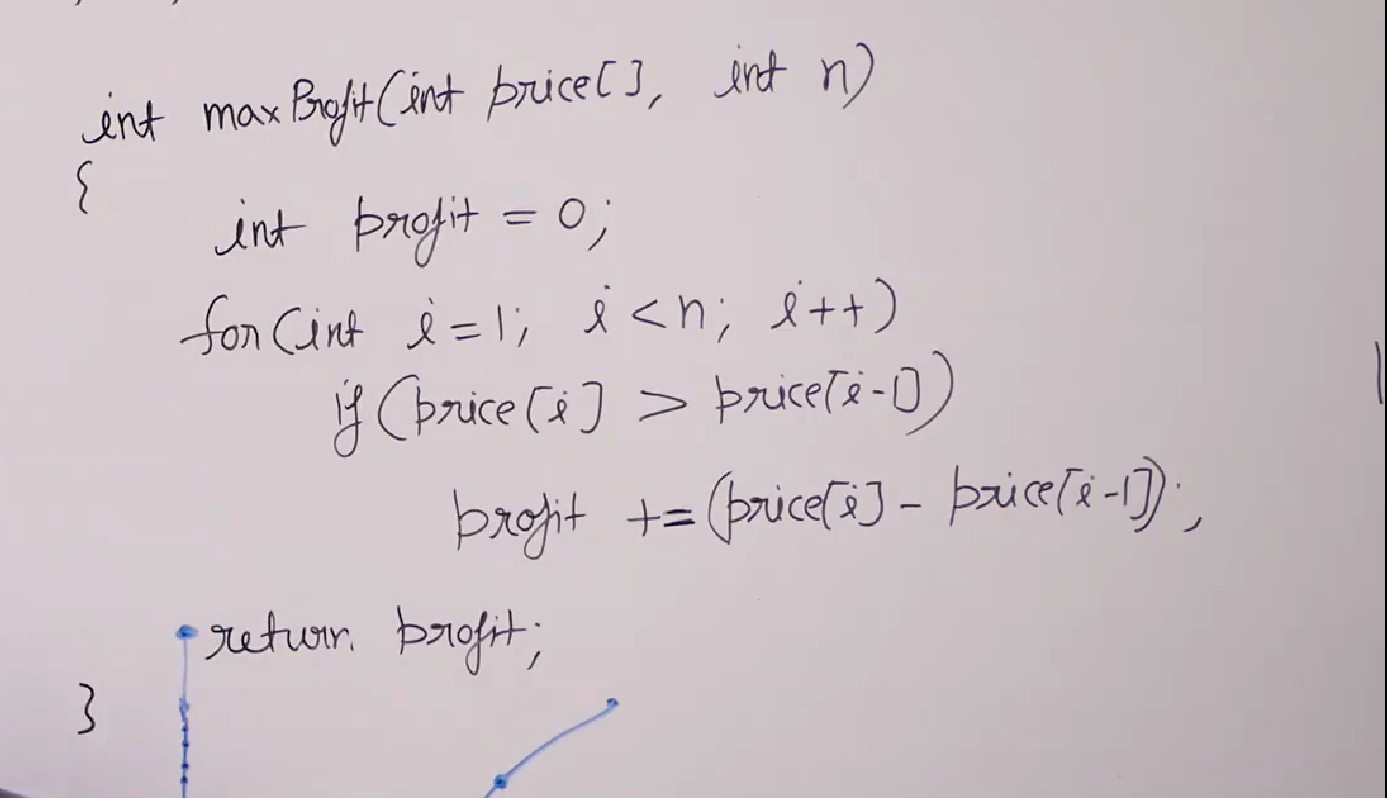 int maxProfit(int price[], int n)
{
int profit = 0;
for(int i=1; i<n; i++)
if(price[i] > price[i-1])
profit += (price[i] - price[i-1]);
return profit;
}